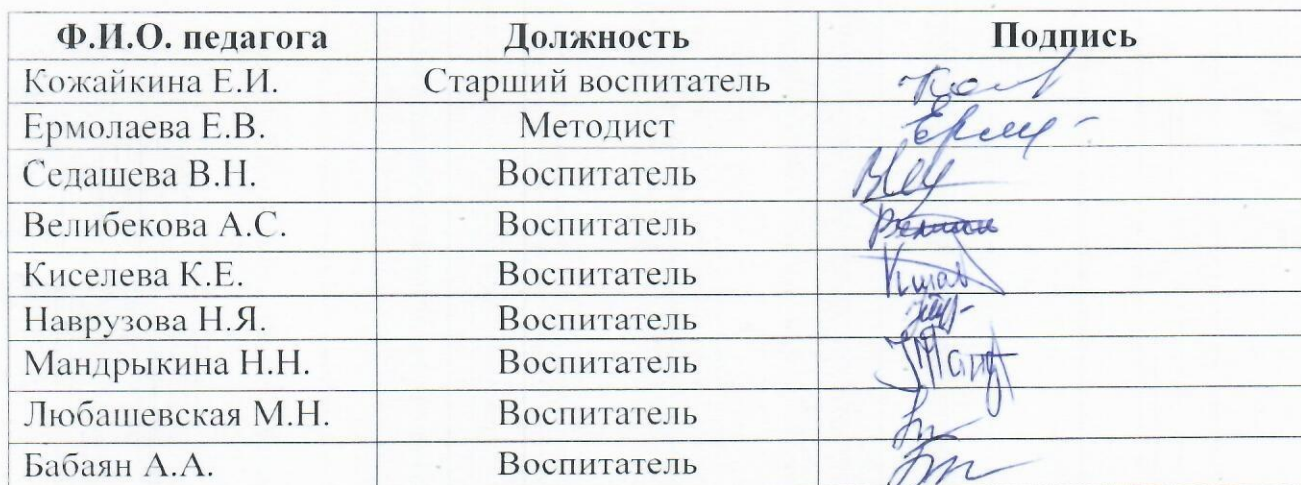 Ф.И.О. педагога Должность Подпись
Кожайкина Е.И. Старший воспитатель
Ермолаева Е.В. Методист
Седашева В.Н. Воспитатель
Велибекова А.С. Воспитатель
Киселева К.Е. Воспитатель
Наврузова Н.Я. Воспитатель
Мандрыкина Н.Н. Воспитатель
Любашевская М.Н. Воспитатель
Бабаян А.А. Воспитатель